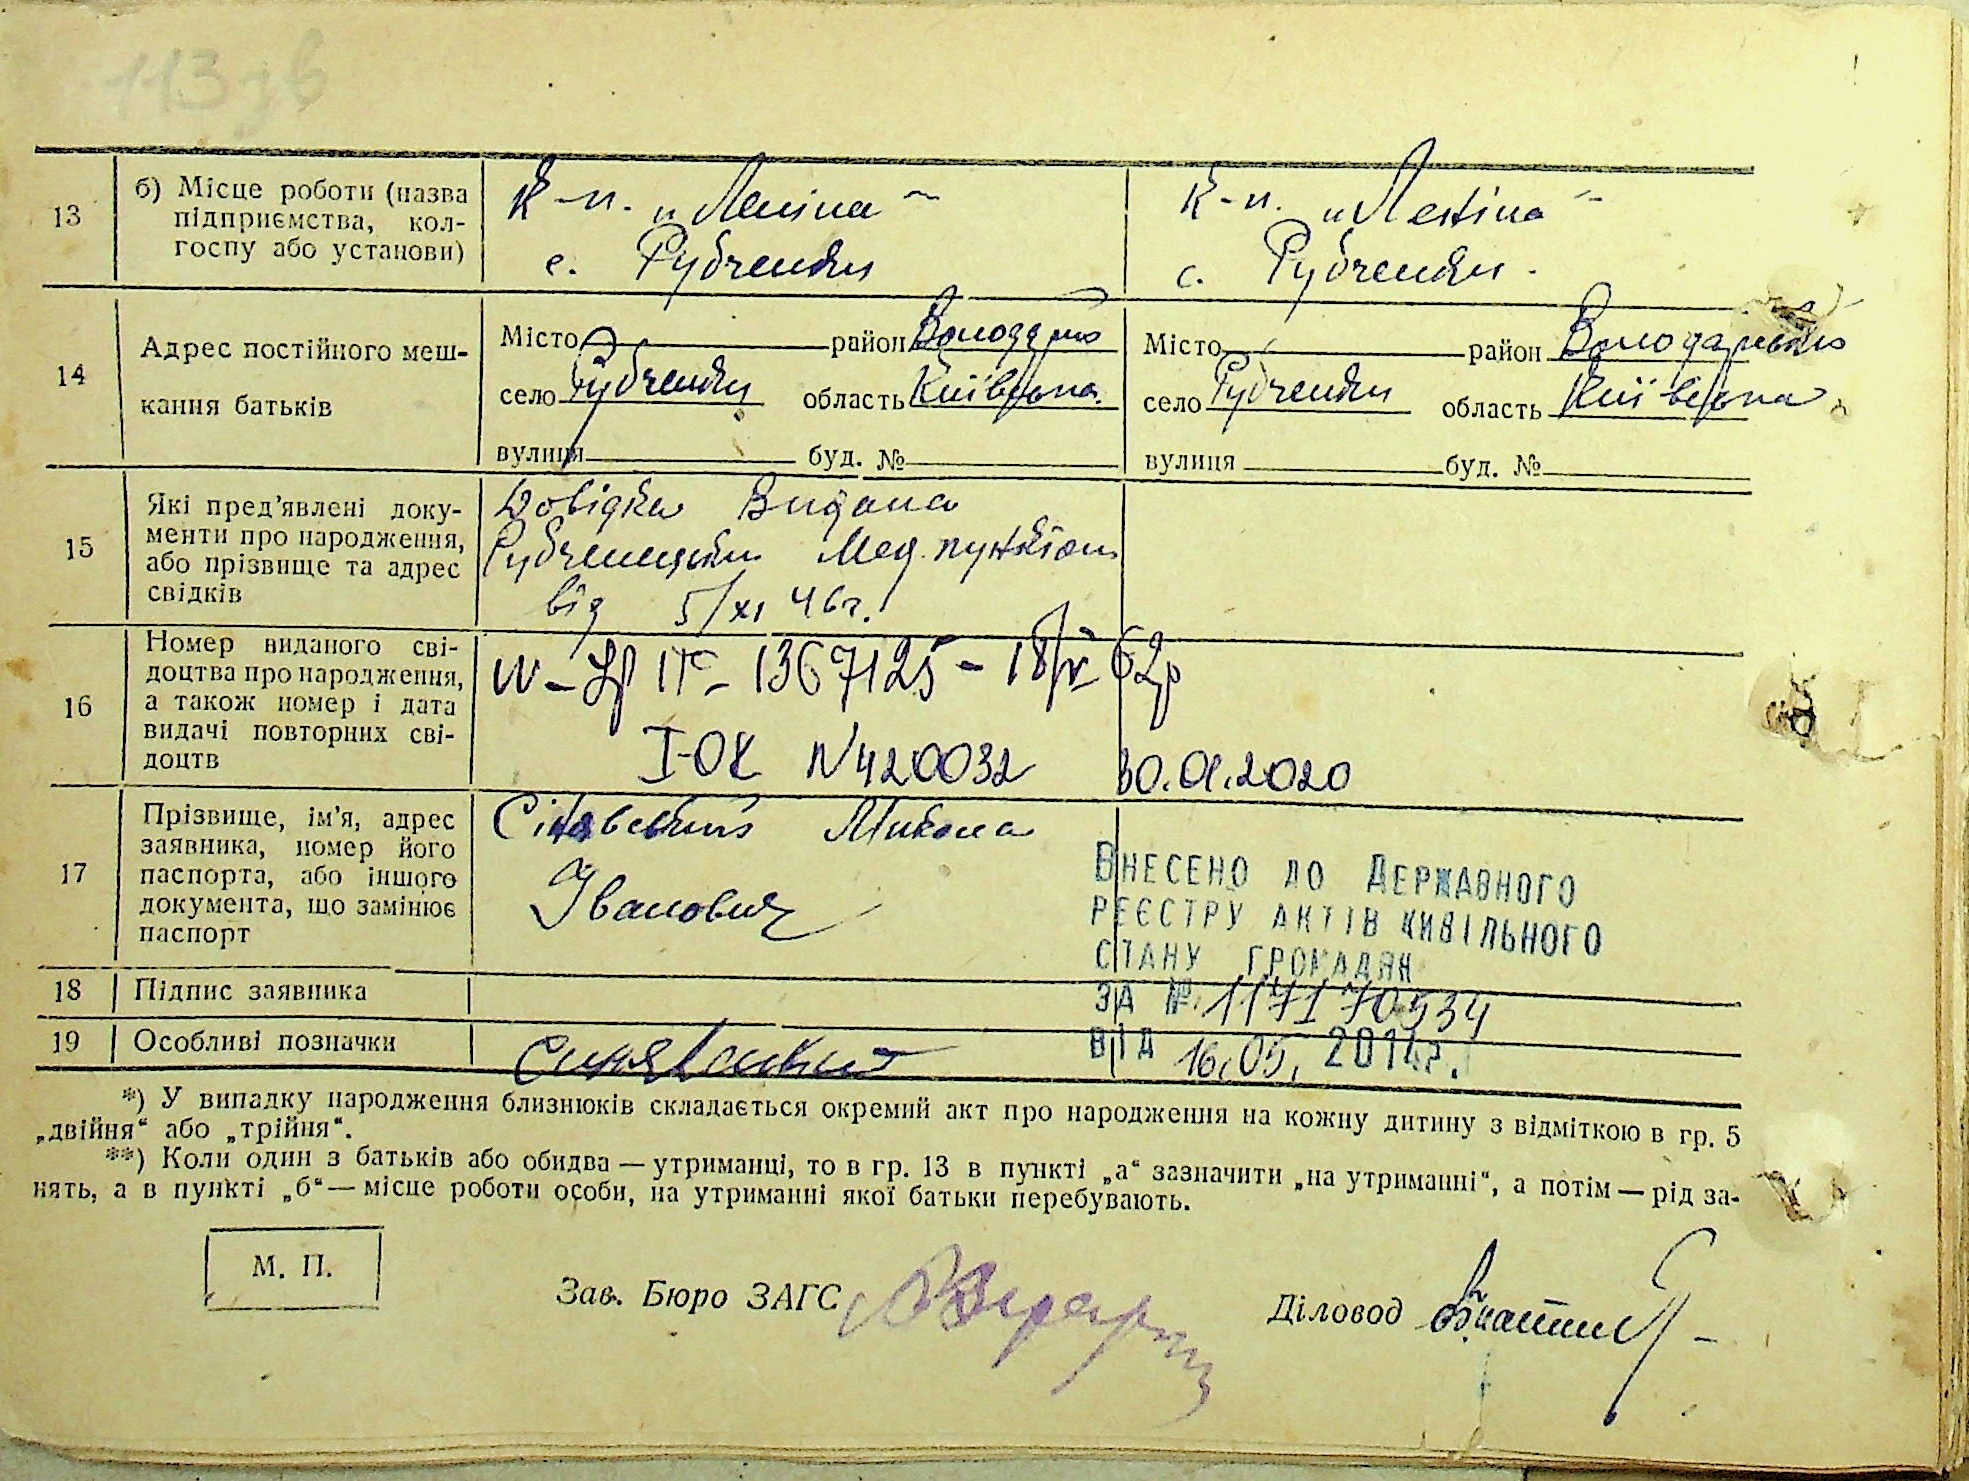 113 зв
13
б) Місце роботи (назва
підприємства, кол-
госпу або установи)
к-п. „Леніна"
с. Рубченки
к-п. „Леніна"
с. Рубченки.
14
Адрес постійного меш-
кання батьків
Місто район
село Рубченки область Київська.
вулиця буд. №
Місто район Володарсько
село Рубченки область Київська
вулиця буд. №
15
Які пред'явлені доку-
менти про народження,
або прізвище та адрес
свідків
Довідка Видана
Мед. пунктом
від 5/XI 46г.
16
Номер виданого сві-
доцтва про народження,
а також номер і дата
видачі повторних сві-
доцтв
1367125 - 18/V 62р
І-ОК №420032 30.01.2020
17
Прізвище, ім'я, адрес
заявника, номер його
паспорта, або іншого
документа, що замінює
паспорт
Сінявський Микола
Іванович
Внесено до Державного
реєстру актів цивільного
стану громадян
за № 1171 70534
від 16.05. 2014р.
18
Підпис заявника
19
Особливі позначки
Синявский
*) У випадку народження близнюків складається окремий акт про народження на кожну дитину з відміткою в гр. 5
„двійня“ або „трійня“.
**) Коли один з батьків або обидва — утриманці, то в гр. 13 в пункті „а“ зазначити „на утриманні“, а потім — рід за-
нять, а в пункті „б“ — місце роботи особи, на утриманні якої батьки перебувають.
М. П.
Зав. Бюро ЗАГС
Діловод